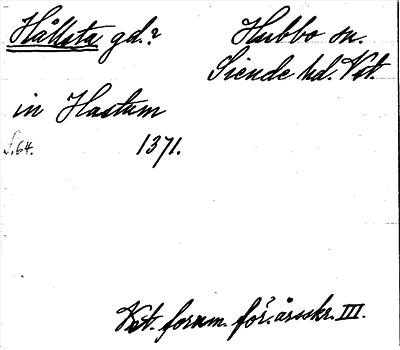 Hållsta gd.? Hubbo sn.
Siende hd. Vst.
in Hastum
S. 64. 1371.
Vst. fornm. för:s årsskr. III.